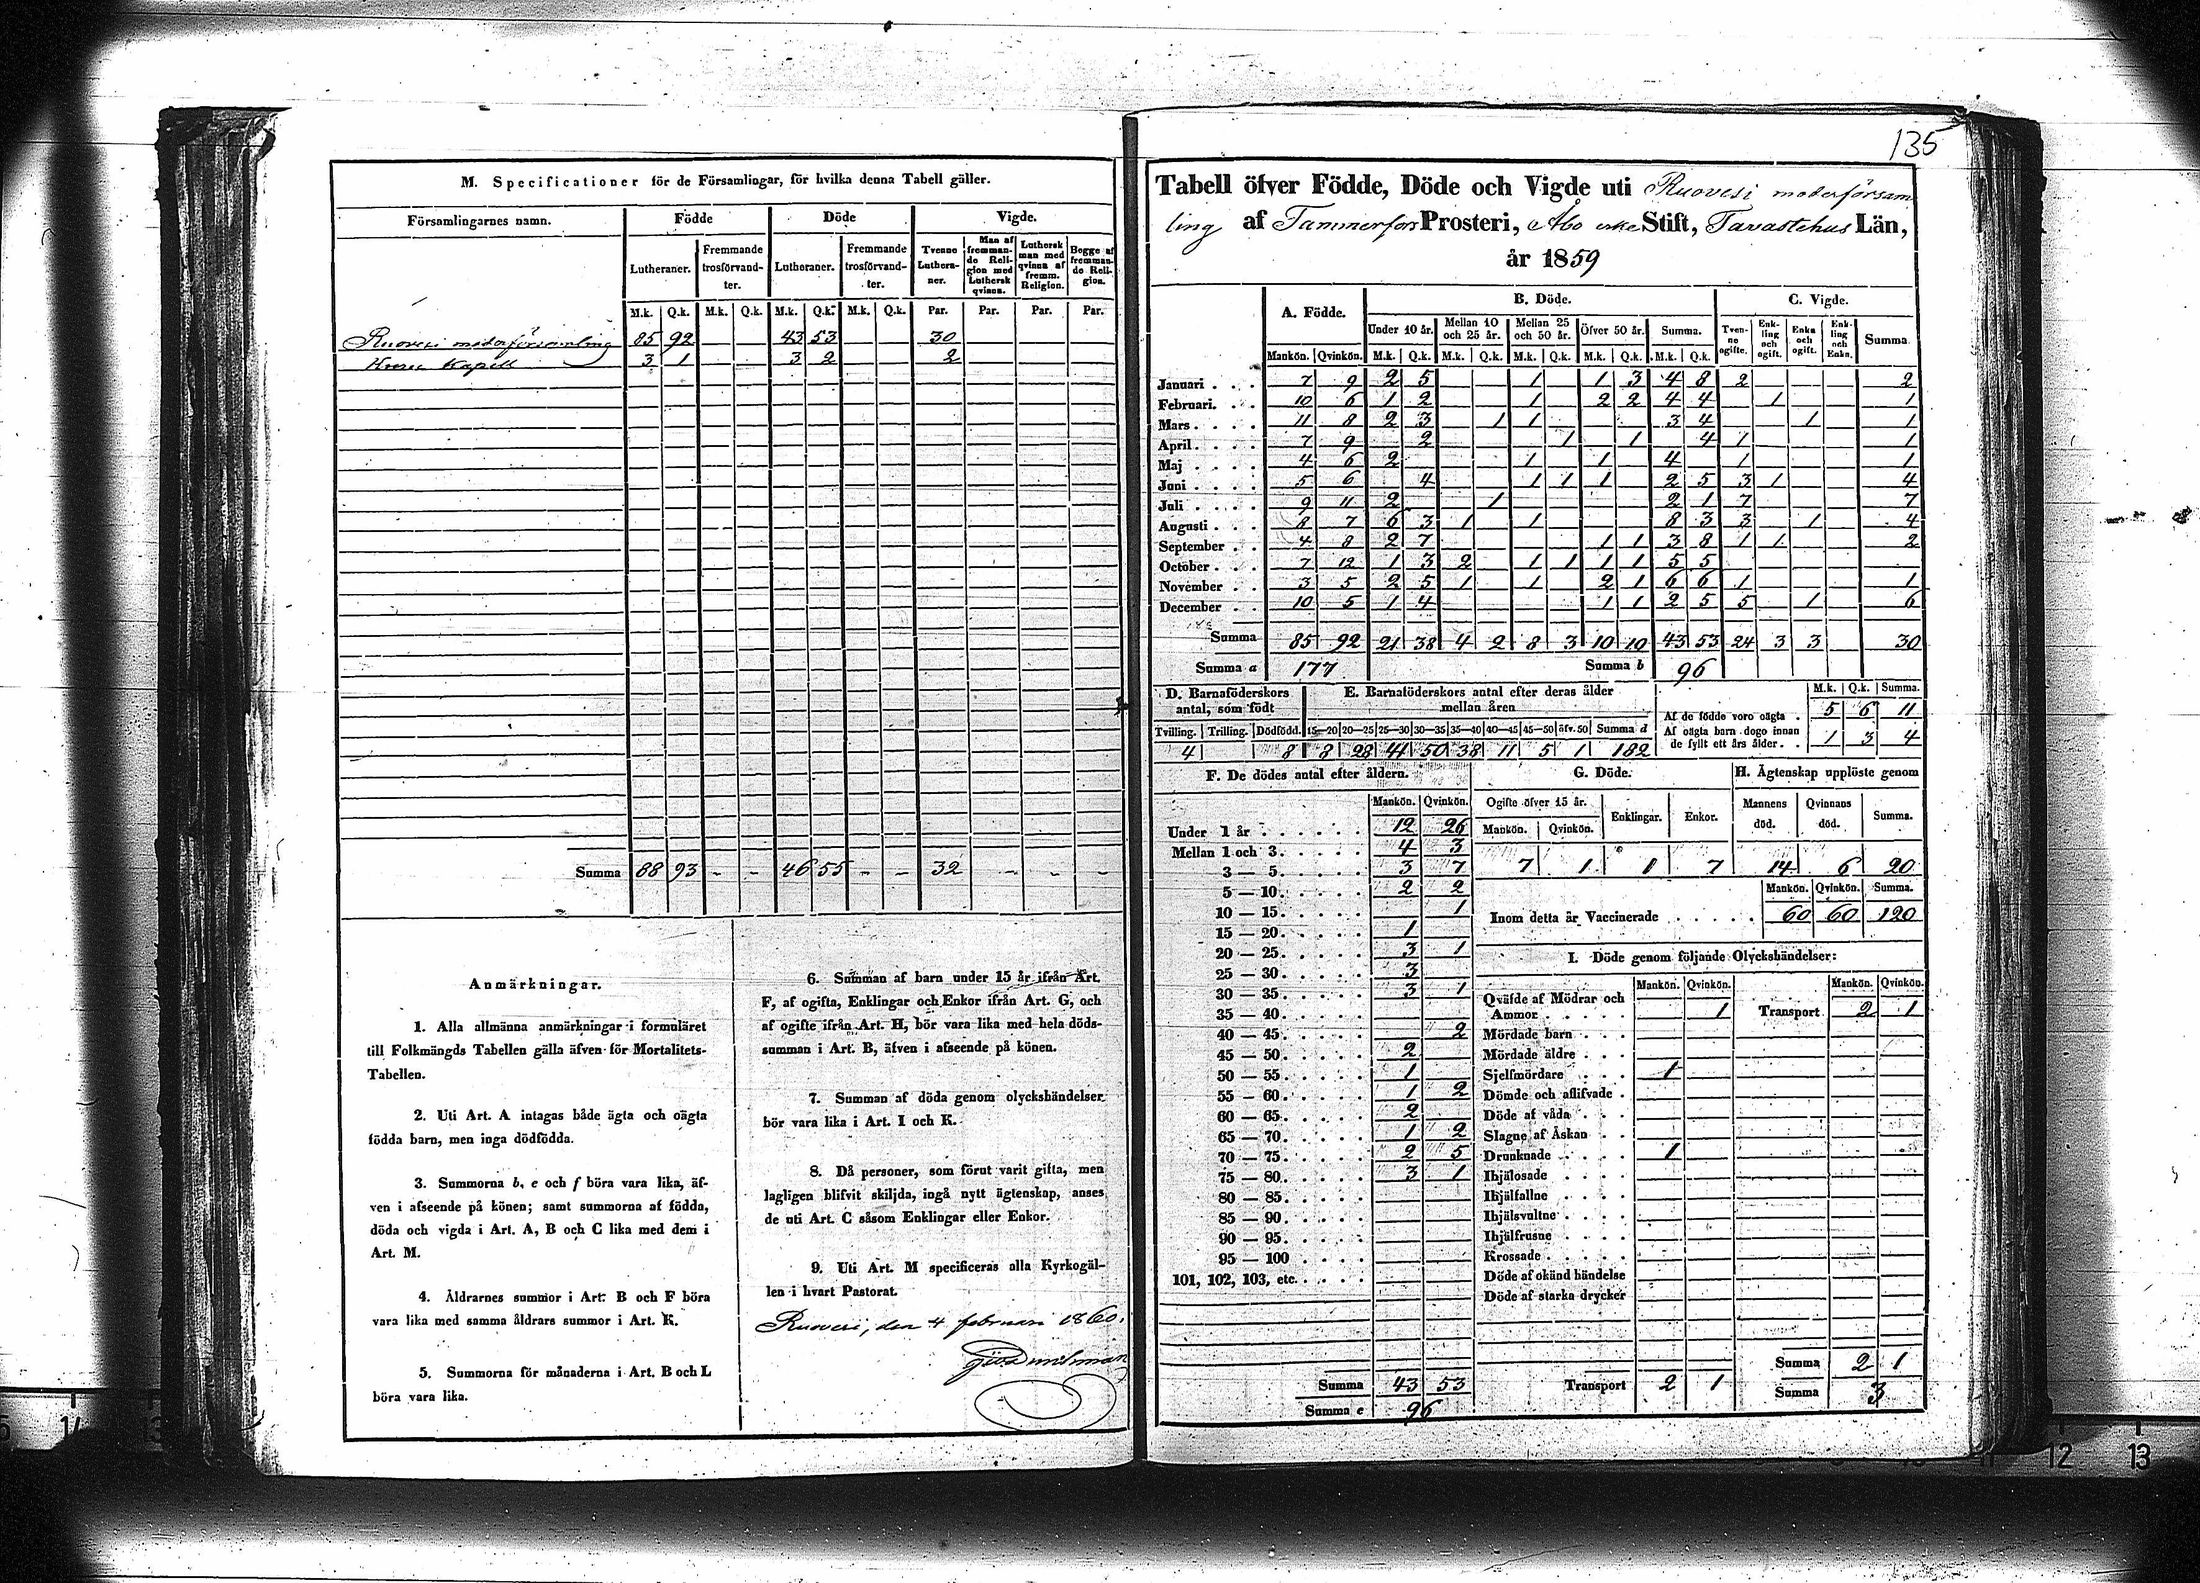 M. Specificationer för de Församlingar, för hvilka denna Tabell gäller.
Församlingarnes namn. Födde Döde Vigde.
Lutheraner. Fremmande trosförvandter. Lutheraner. Fremmande trosförvandter. Tvenne Lutheraner. Man af fremmande Religion med Luthersk qvinna. Luthersk man med qvinna af fremm. Religion. Begge af fremmande Religion.
M.k. Q.k. M.k. Q.k. M.k. Q.k. M.k. Q.k. Par. Par. Par. Par.
Ruovesi moderförsamling 85 92 43 53 30
Kapell 3 1 3 2 2
Summa 88 93 - - 46 55 - - 32 - - -
Anmärkningar.
1. Alla allmänna anmärkningar i formuläret
till Folkmängds Tabellen gälla äfven för Mortalitets-
Tabellen.
2. Uti Art. A intagas både ägta och oägta
födda barn, men inga dödfödda.
3. Summorna b, e och f böra vara lika, äf-
ven i afseende på könen; samt summorna af födda,
döda och vigda i Art. A, B och C lika med dem i
Art. M.
4. Åldrarnes summor i Art. B och F böra
vara lika med samma åldrars summor i Art. K.
5. Summorna för månaderna i Art. B och L
böra vara lika.
6. Summan af barn under 15 år ifrån Art.
F, af ogifta, Enklingar och Enkor ifrån Art. G, och
af ogifte ifrån Art. H, bör vara lika med hela döds-
summan i Art. B, äfven i afseende på könen.
7. Summan af döda genom olyckshändelser
bör vara lika i Art. I och K.
8. Då personer, som förut varit gifta, men
lagligen blifvit skiljda, ingå nytt ägtenskap, anses
de uti Art. C såsom Enklingar eller Enkor.
9. Uti Art. M specificeras alla Kyrkogäl-
len i hvart Pastorat.
Ruovesi, den 4 februari 1860.
135
Tabell öfver Födde, Döde och Vigde uti Ruovesi moderförsam
ling af Tammerfors Prosteri, Åbo erke Stift, Tavastehus Län,
år 1859
A. Födde. B. Döde. C. Vigde.
Under 10 år. Mellan 10 och 25 år. Mellan 25 och 50 år. Öfver 50 år. Summa. Tvenne ogifte. Enkling och ogift. Enka och ogift. Enkling och Enka. Summa
Mankön. Qvinkön. M.k. Q.k. M.k. Q.k. M.k. Q.k. M.k. Q.k. M.k. Q.k.
Januari 7 9 2 5 1 1 3 4 8 2 2
Februari. 10 6 1 2 1 2 2 4 4 1 1
Mars 11 8 2 3 1 1 3 4 1 1
April 7 9 2 1 1 4 1 1
Maj 4 6 2 1 1 4 1 1
Juni 5 6 4 1 1 1 2 5 3 1 4
Juli 9 11 2 1 2 1 7 7
Augusti 8 7 6 3 1 1 8 3 3 1 4
September 4 8 2 7 1 1 3 8 1 1 2
October 7 12 1 3 2 1 1 1 1 5 5
November 3 5 2 5 1 1 2 1 6 6 1 1
December 10 5 1 4 1 1 2 5 5 1 6
Summa 85 92 21 38 4 2 8 3 10 10 43 53 24 3 3 30
Summa a 177 Summa b 96
D. Barnaföderskors antal, som födt
Tvilling. Trilling. Dödfödd.
4 8
E. Barnaföderskors antal efter deras ålder mellan åren
15—20 20—25 25—30 30—35 35—40 40—45 45—50 öfv. 50 Summa d
8 28 41 50 38 11 5 1 182
M.k. Q.k. Summa.
Af de födde voro oägta 5 6 11
Af oägta barn dogo innan de fyllt ett års ålder 1 3 4
F. De dödes antal efter åldern.
Mankön. Qvinkön.
Under 1 år 12 26
Mellan 1 och 3 4 3
3 — 5 3 7
5 — 10 2 2
10 — 15 1
15 — 20 1
20 — 25 3 1
25 — 30 3
30 — 35 3 1
35 — 40
40 — 45 2
45 — 50 2
50 — 55 1
55 — 60 1 2
60 — 65 2
65 — 70 1 2
70 — 75 2 5
75 — 80 3 1
80 — 85
85 — 90
90 — 95
95 — 100
101, 102, 103, etc.
Summa 43 53
Summa e 96
G. Döde.
Ogifte öfver 15 år. Enklingar. Enkor.
Mankön. Qvinkön.
7 1 1 7
H. Ägtenskap upplöste genom
Mannens död. Qvinnans död. Summa.
14 6 20
Mankön. Qvinkön. Summa.
Inom detta år Vaccinerade 60 60 120
I. Döde genom följande Olyckshändelser:
Mankön. Qvinkön. Mankön. Qvinkön.
Qväfde af Mödrar och Ammor 1 Transport 2 1
Mördade barn
Mördade äldre
Sjelfmördare 1
Dömde och aflifvade
Döde af våda
Slagne af Åskan
Drunknade 1
Ihjälosade
Ihjälfallne
Ihjälsvultne
Ihjälfrusne
Krossade
Döde af okänd händelse
Döde af starka drycker
Summa 2 1
Transport 2 1 Summa 3